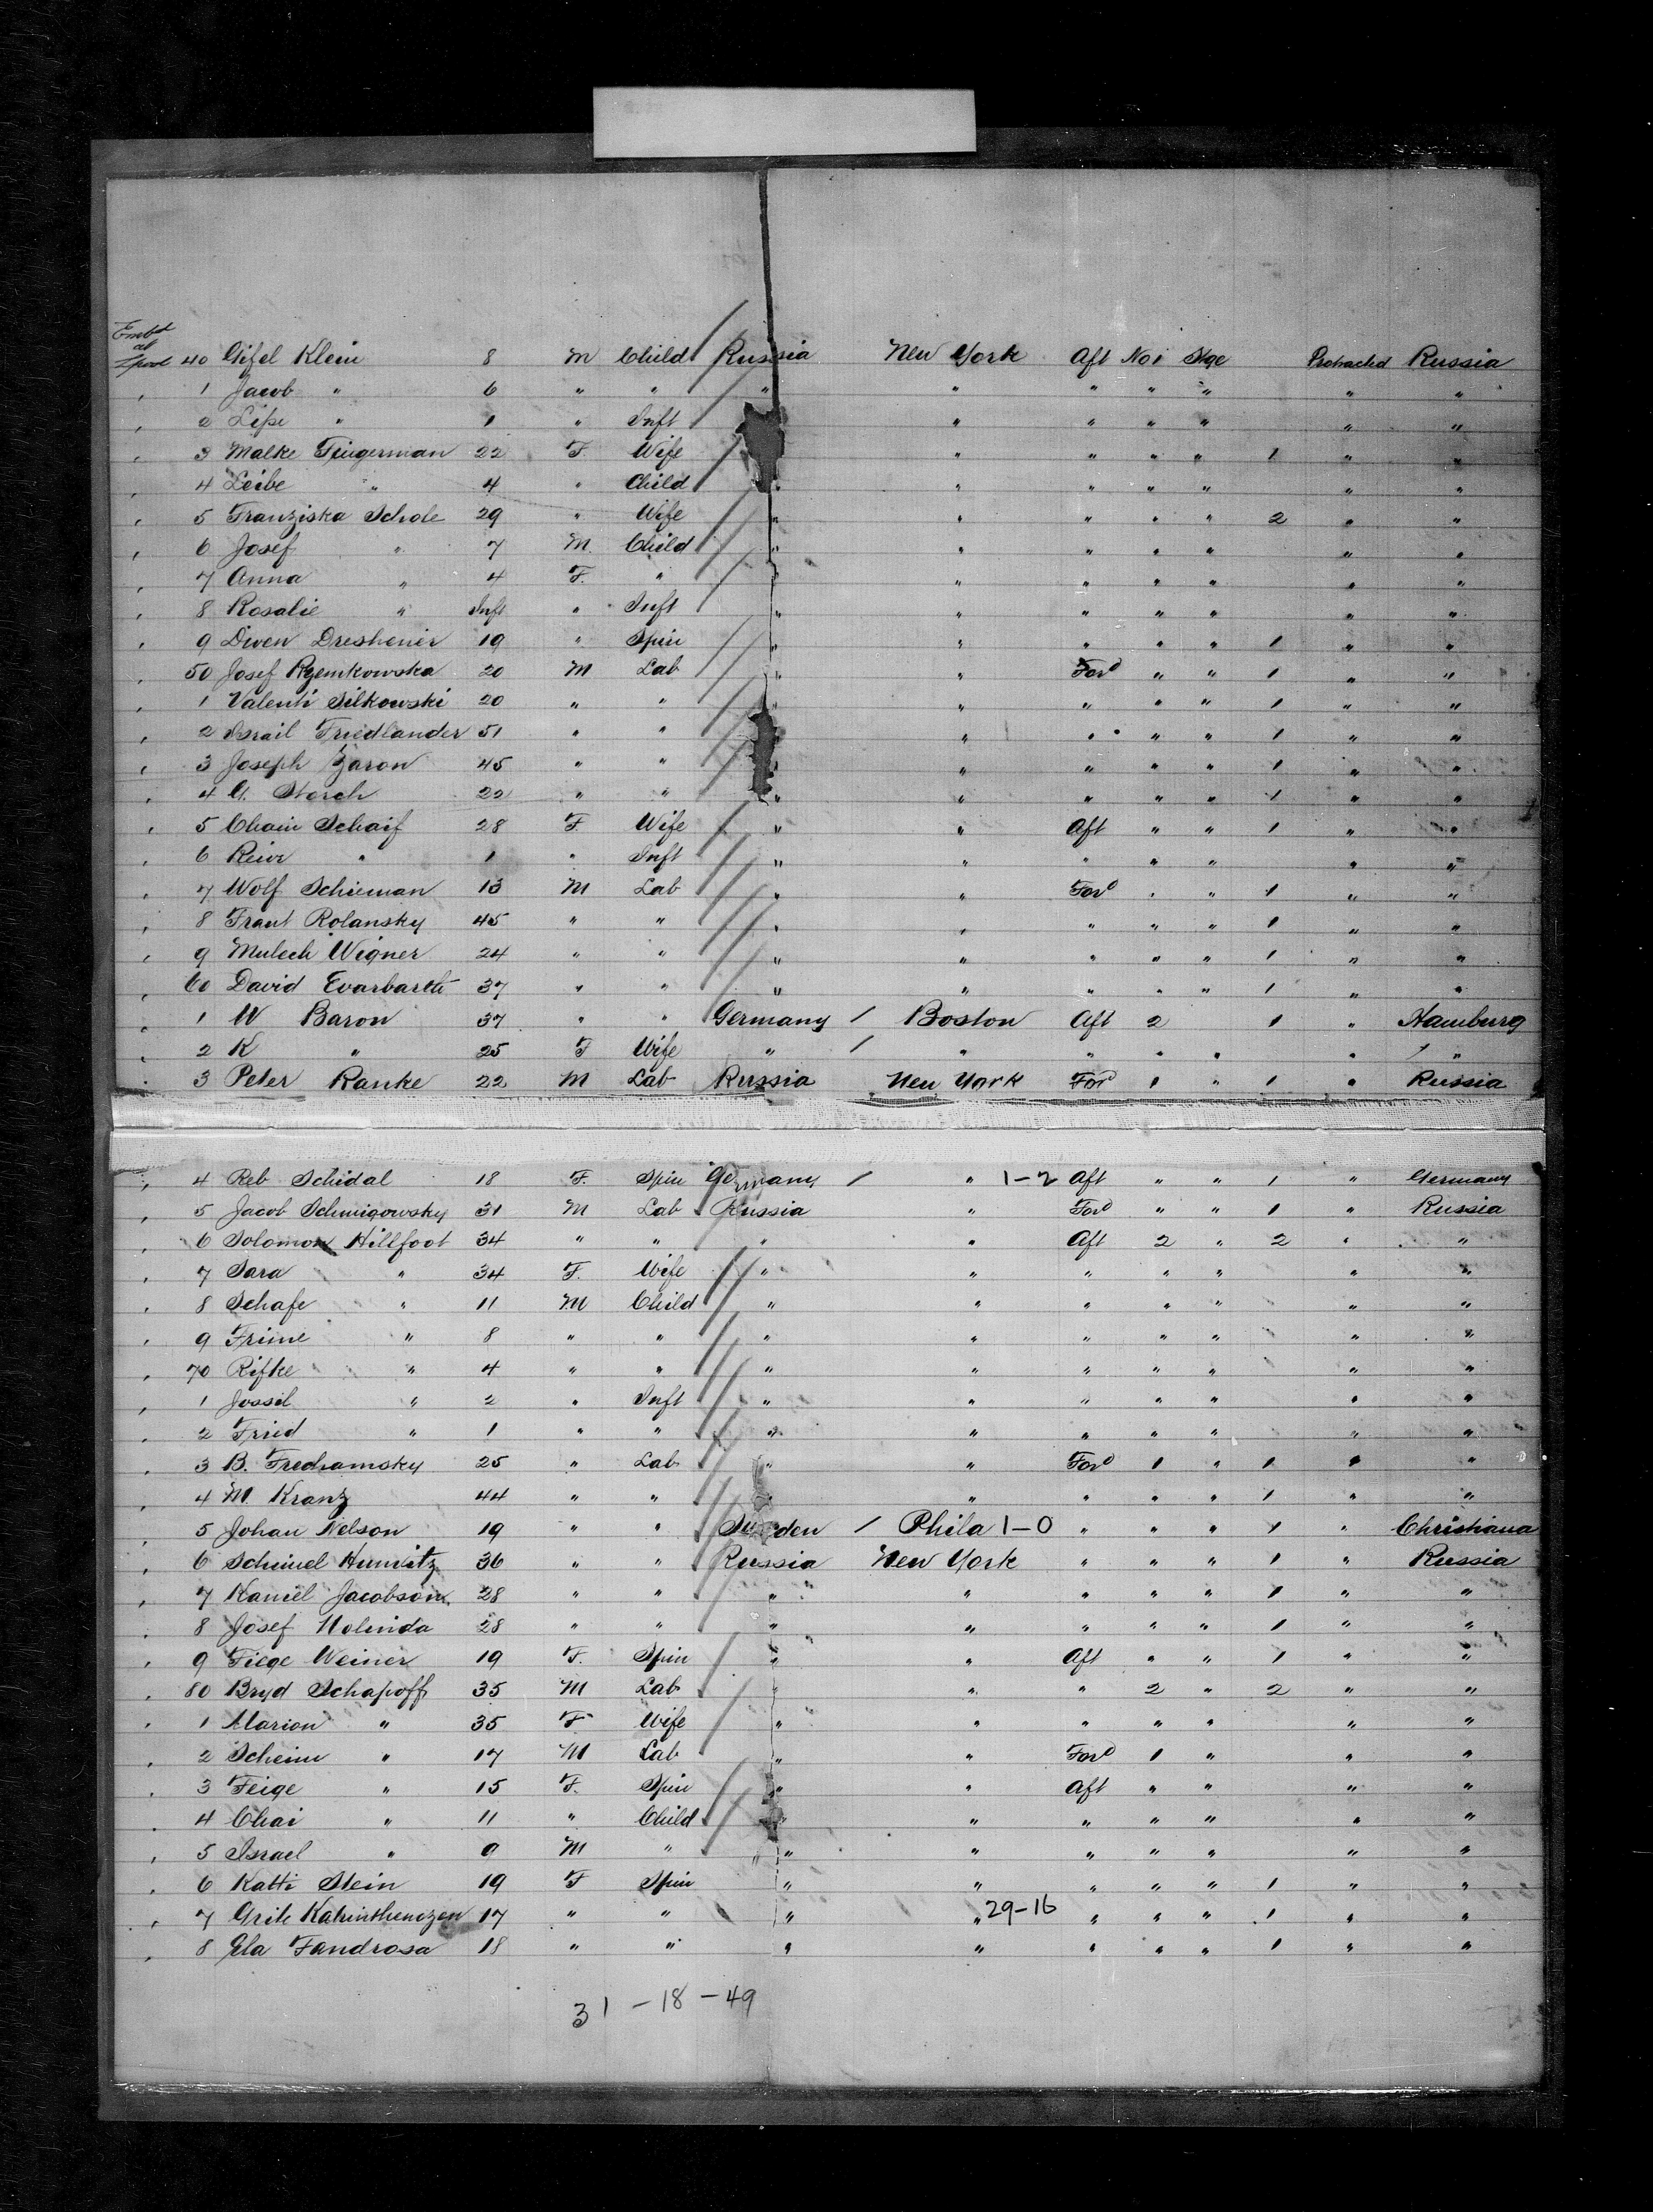 Embd at Lpool 40 Gifel Klein 8 M Child Russia New York Aft No 1 Stge Protracted Russia
" 1 Jacob " 6 " " " " " " " " "
" 2 Lipe " 1 " Inft " " " " " "
" 3 Malke Fingerman 22 F Wife " " " " 1 " "
" 4 Leibe " 4 " Child " " " " " " "
" 5 Franziska Schole 29 " Wife " " " " " 2 " "
" 6 Josef " 7 M. Child " " " " " " "
" 7 Anna " 4 F. " " " " " " " "
" 8 Rosalie " Inft " Inft " " " " " " "
" 9 Dwen Dreshenir 19 " Spin " " " " " 1 " "
" 50 Josef Rzemkowska 20 M Lab " " Ford " " 1 " "
" 1 Valenti Silkowski 20 " " " " " " " 1 " "
" 2 Israil Friedlander 51 " " " " " " 1 " "
" 3 Joseph Baron 45 " " " " " " " 1 " "
" 4 G. Storch 22 " " " " " " " 1 " "
" 5 Chain Schaif 28 F. Wife " " Aft " " 1 " "
" 6 " 1 " Inft " " " " " " "
" 7 Wolf Schieman 13 M Lab " " Ford " " 1 " "
" 8 Frant Rolansky 45 " " " " " " " 1 " "
" 9 Mulech Wigner 24 " " " " " " " 1 " "
" 60 David 37 " " " " " " " 1 " "
" 1 W Baron 37 " " Germany / Boston Aft 2 1 " Hamburg
" 2 K " 25 F Wife " / " " " " " "
" 3 Peter Ranke 22 M Lab Russia New York Ford 1 " 1 " Russia
" 4 Reb Schidal 18 F. Spin Germany / " 1-2 Aft " " 1 " Germany
" 5 Jacob Schmigowsky 31 M Lab Russia " Ford " " 1 " Russia
" 6 Solomon Hillfoot 34 " " " " Aft 2 " 2 " "
" 7 Sara " 34 F. Wife " " " " " " "
" 8 Schafe " 11 M Child " " " " " " "
" 9 Frime " 8 " " " " " " " " "
" 70 Rifke " 4 " " " " " " " " "
" 1 Jossel " 2 " Inft " " " " " " "
" 2 Fried " 1 " " " " " " " " "
" 3 B. Fredhamsky 25 " Lab " " Ford 1 " 1 " "
" 4 M. Kranz 44 " " " " " " 1 " "
" 5 Johan Nelson 19 " " Sweden / Phila 1-0 " " " 1 " Christiana
" 6 Schimel Hurwitz 36 " " Russia New York " " " 1 " Russia
" 7 Kamel Jacobson 28 " " " " " " " 1 " "
" 8 Josef Nolinda 28 " " " " " " " 1 " "
" 9 Fiege Weiner 19 F. Spin " " Aft " " 1 " "
" 80 Bryd Schapoff 35 M Lab " " " 2 " 2 " "
" 1 Marion " 35 F Wife " " " " " " "
" 2 Scheim " 17 M Lab " " Ford 1 " " "
" 3 Feige " 15 F. Spin " " Aft " " " "
" 4 Chai " 11 " Child " " " " " " "
" 5 Israel " 9 M " " " " " " " "
" 6 Katti Stein 19 F Spin " " " " " 1 " "
" 7 Grite 17 " " " " 29-16 " " " 1 " "
" 8 Ela Fandrosa 18 " " " " " " " 1 " "
31 - 18 - 49